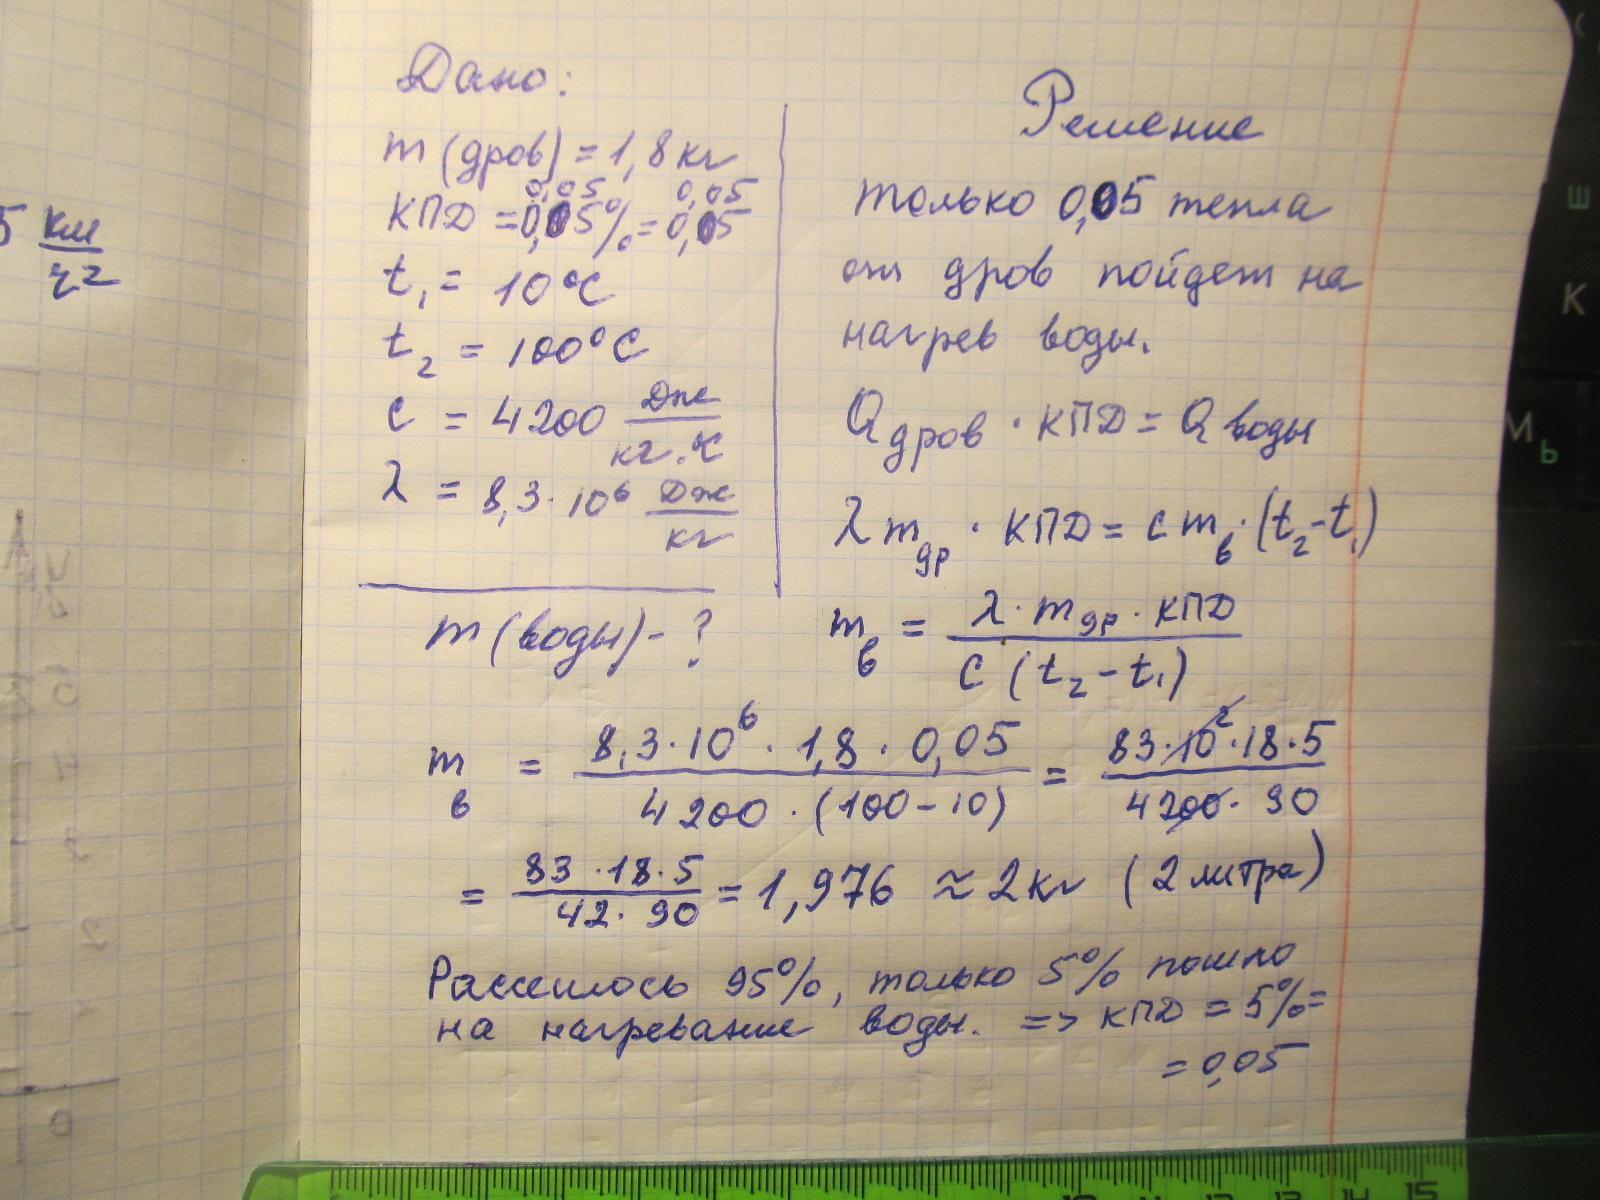 Дано:
m (дров) = 1,8 кг
0,05 0,05
КПД = 0,05% = 0,05
t₁ = 10°C
t₂ = 100°C
c = 4200 Дж/кг·°C
λ = 8,3·10⁶ Дж/кг
m (воды) - ?
Решение
только 0,05 тепла
от дров пойдет на
нагрев воды.
Q дров · КПД = Q воды
λ m др · КПД = c m в · (t₂ - t₁)
m в = λ · m др · КПД / c (t₂ - t₁)
m в = 8,3·10⁶ · 1,8 · 0,05 / 4200 · (100 - 10) = 83·10²·18·5 / 4200·90
= 83·18·5 / 42·90 = 1,976 ≈ 2 кг (2 литра)
Рассеялось 95%, только 5% пошло
на нагревание воды. => КПД = 5% =
= 0,05
5 км/ч²
Ш
К
М
Ь
11 12 13 14 15